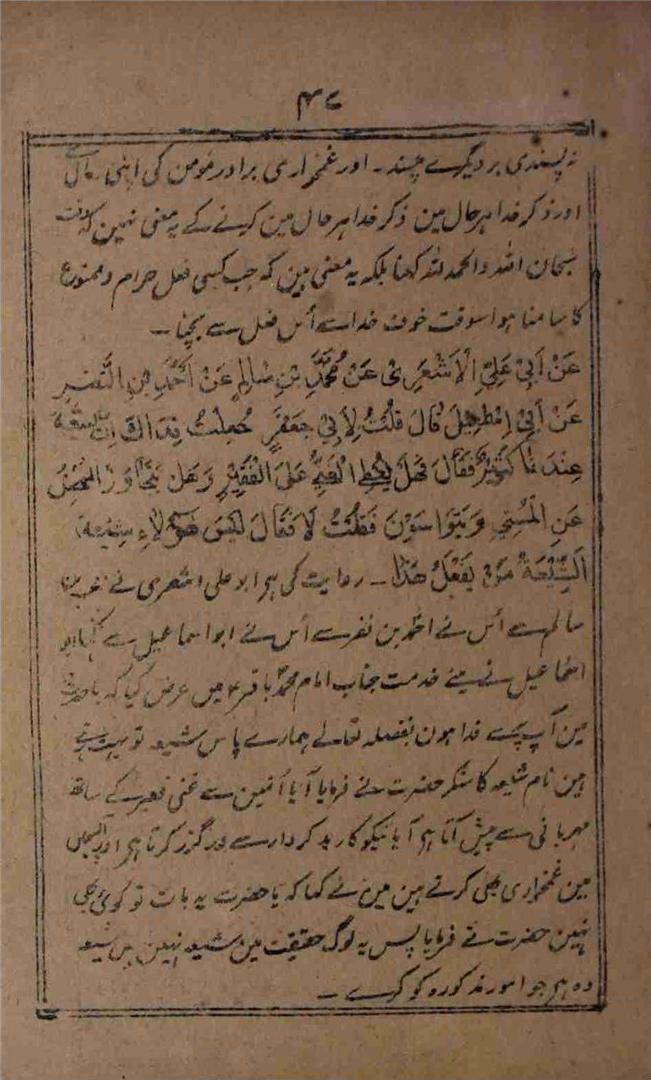 ۴۷
نہ پسندی بر دیگرے مپسند ۔ اور غمخواری برادر مومن کی اپنی مال سے
اور ذکر خدا ہر حال مین ذکر خدا ہر حال مین کرینے کے یہ معنی نہین کہ
سبحان اللہ والحمد للہ کہنا بلکہ یہ معنی ہین کہ جب کسی فعل حرام و ممنوع
کا سامنا ہو اسوقت خوف خدا سے اُس فعل سے بچنا ۔
عَنْ اَبِیْ عَلِیِّ الْاَشْعَرِیِّ عَنْ مُحَمَّدِ بْنِ سَالِمٍ عَنْ اَحْمَدِ بْنِ النَّضْرِ
عَنْ اَبِیْ اِسْمٰعِیْلَ قَالَ قُلْتُ لِاَبِیْ جَعْفَرٍ جُعِلْتُ فِدَاكَ اِنَّ الشِّیْعَةَ
عِنْدَنَا كَثِیْرٌ فَقَالَ فَهَلْ یَعْطِفُ الْغَنِیُّ عَلَی الْفَقِیْرِ وَهَلْ یَتَجَاوَزُ الْمُحْسِنُ
عَنِ الْمُسِیْءِ وَیَتَوَاسَوْنَ فَقُلْتُ لَا فَقَالَ لَیْسَ هٰؤُلَاءِ شِیْعَة
اَلشِّیْعَةُ مَنْ یَفْعَلُ هٰذَا ۔ روایت کی ہر ابو علی اشعری نے محمد بن
سالم سے اُس نے احمد بن نضر سے اُس نے ابو اسماعیل سے کہا ابو
اسماعیل نے مینے خدمت جناب امام محمد باقرؑ میں عرض کیا کہ یا حضرت
مین آپ پر سے فدا ہون بفضلہ تعالے ہمارے پاس شیعہ تو بہت سے
ہین نام شیعہ کا سنکر حضرت نے فرمایا آیا اُنمین سے غنی فقیر کے ساتھ
مہربانی سے پیش آتا ہر آیا نیکوکار بدکردار سے درگزر کرتا ہر اور آپسمیں
مین غمخواری بھی کرتے ہین مین نے کہا کہ یا حضرت یہ بات تو کوئی بھی
نہین حضرت نے فرمایا پس یہ لوگ حقیقت مین شیعہ نہین ہین شیعہ
وہ ہر جو امور مذکورہ کو کرے ۔